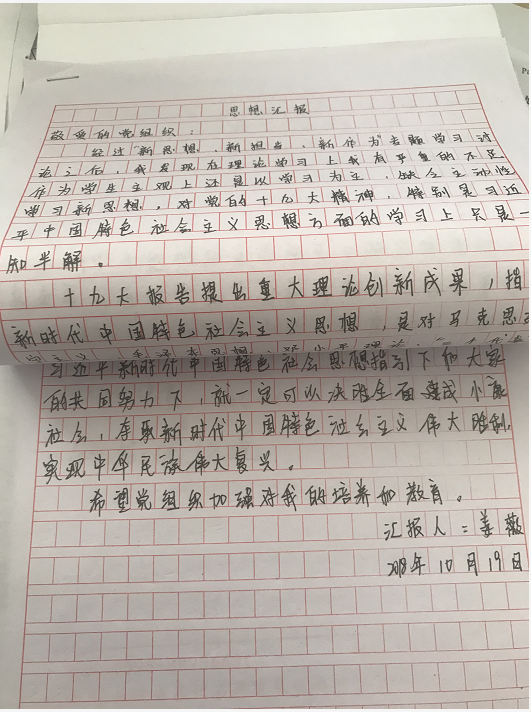 思想汇报
敬爱的党组织:
经过"新思想,新担当,新作为"专题学习讨
论之后,我发现在理论学习上我有严重的不足
作为学生主观上还是以学习为主,缺乏主动性
学习新思想,对党的十九大精神,特别是习近
平中国特色社会主义思想方面的学习上只是一
知半解。
十九大报告提出重大理论创新成果,指
新时代中国特色社会主义思想,是对马克思
习近平新时代中国特色社会思想指引下和大家
的共同努力下,就一定可以决胜全面建成小康
社会,夺取新时代中国特色社会主义伟大胜利,
实现中华民族伟大复兴。
希望党组织加强对我的培养和教育。
汇报人:姜薇
2018年10月19日